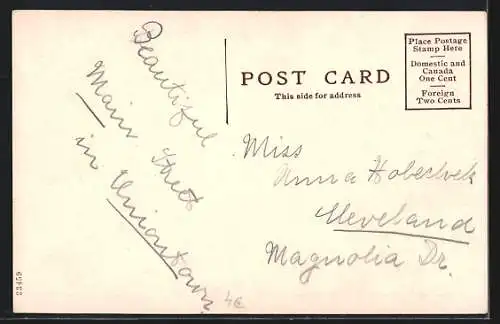 Beautiful
Main Street
in Uniontown
POST CARD
This side for address
Place Postage
Stamp Here
Domestic and
Canada
One Cent
Foreign
Two Cents
Miss
Anna
Cleveland
Magnolia Dr.
23459